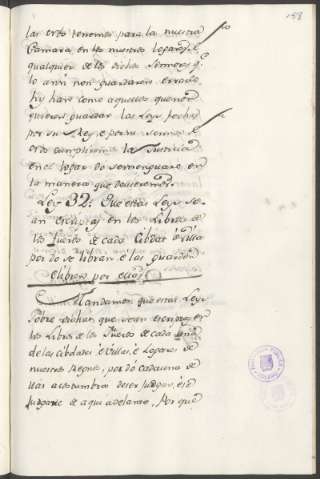 158
las otro tenemos para la nuestra
Camara, en los nuestros logares, e
qualquier de los dichos Sennores q.
lo assi non guardaren errarie
hy hare como aquellos que non
quieren guardar las Leys fechas
por su Rey, e por su sennor, e
otro cumpliremos la Justicia
en el logar do se menguare en
la manera que devieremos
Ley 32: Que estas Leys se-
an escriptas en los Libros de
los Fueros de cada Cibdat o Villa
por do se libran, e las guarden
e libren por ellas
Mandamos que estas Leys
sobre dichas que sean escriptas en
los Libros de los Fueros de cada una
de las cibdades, e Villas, e Logares de
nuestros Regnos, por dó cada una de
ellas acostumbra de se judgar, e se
judgaren de aqui adelante. Por que